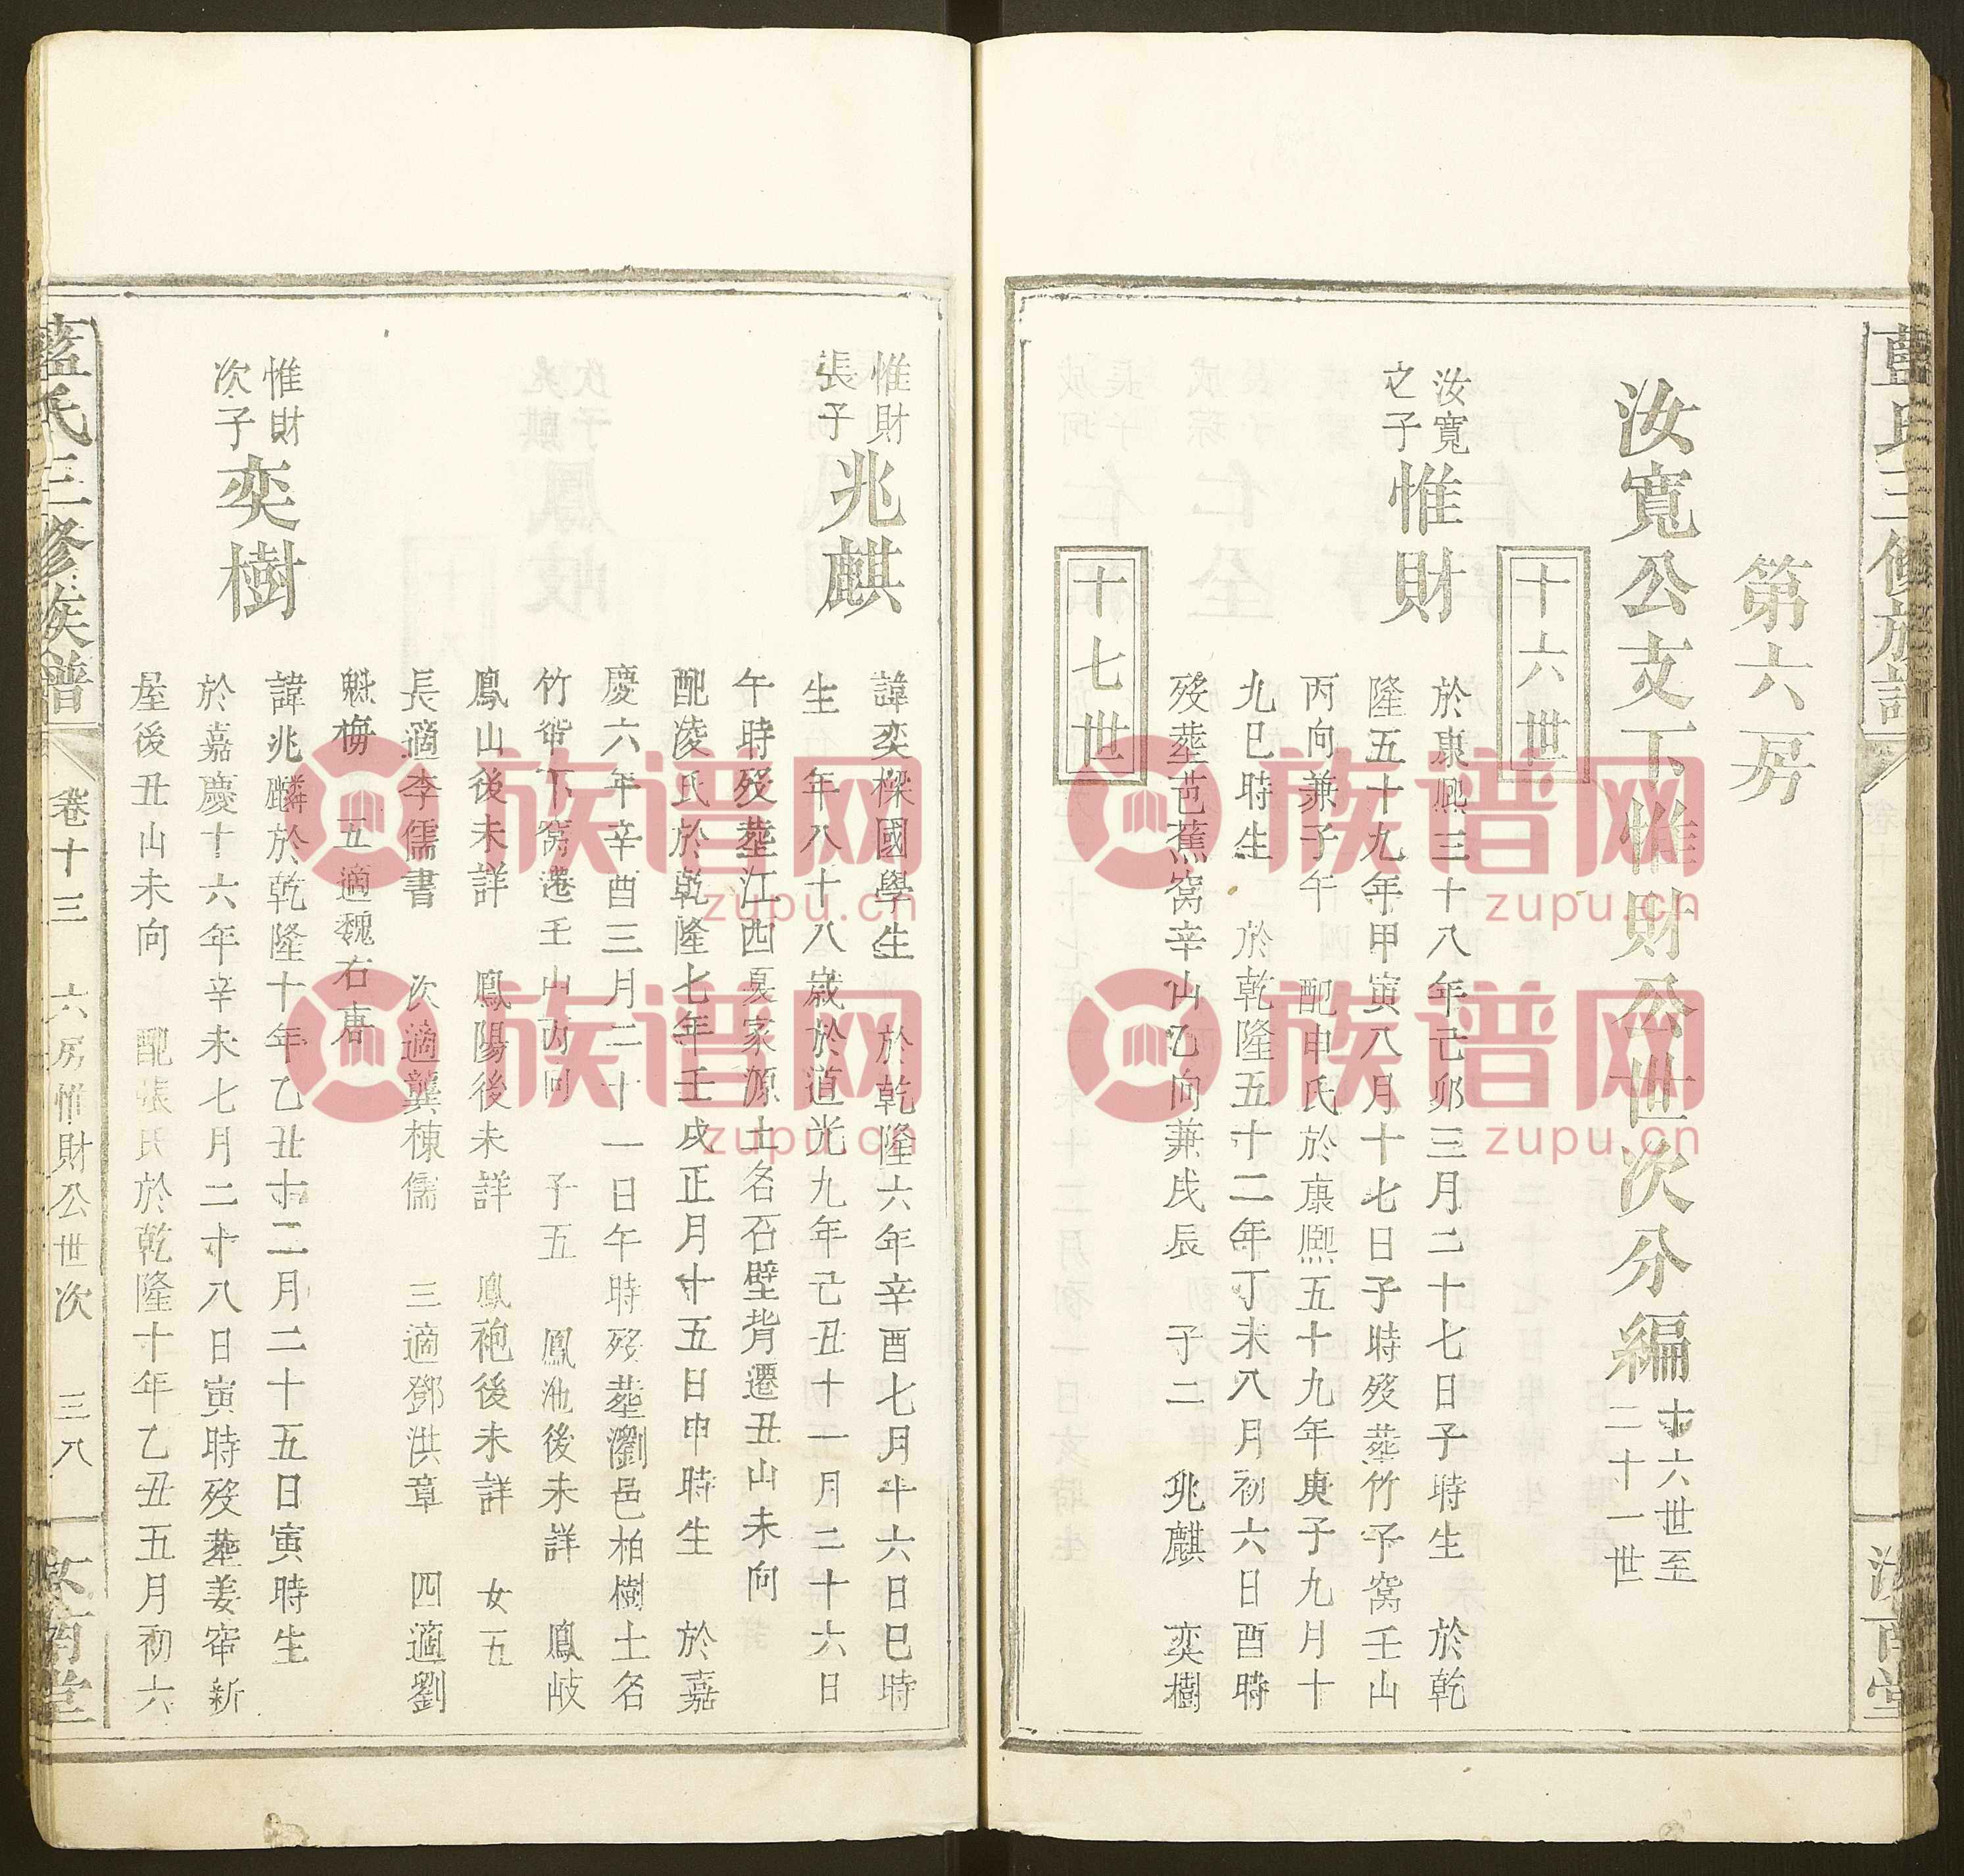 藍氏三修族譜
汝南堂
第六房
汝寬公支下惟財公世次分編
十六世至
二十一世
十六世
汝寬
之子
惟財
於康熙三十八年己卯三月二十七日子時生 於乾
隆五十九年甲寅八月十七日子時歿塟竹予窩壬山
丙向兼子午 配申氏於康熙五十九年庚子九月十
九巳時生 於乾隆五十二年丁未八月初六日酉時
歿塟芭蕉窩辛山乙向兼戌辰 子二 兆麒 奕樹
十七世
惟財
長子
兆麒
諱奕樑國學生 於乾隆六年辛酉七月十六日巳時
生 年八十八歲於道光九年己丑十一月二十六日
午時歿塟江西夏家源土名石壁背遷丑山未向
配淩氏於乾隆七年壬戌正月十五日申時生 於嘉
慶六年辛酉三月二十一日午時歿塟瀏邑柏樹土名
竹 下窩遷壬山丙向 子五 鳳池後未詳 鳳岐
鳳山後未詳 鳳陽後未詳 鳳袍後未詳 女五
長適李儒書 次適龔棟儒 三適鄧洪章 四適劉
魁梅 五適魏右唐
惟財
次子
奕樹
諱兆麟於乾隆十年乙丑十二月二十五日寅時生
於嘉慶十六年辛未七月二十八日寅時歿塟姜 新
屋後丑山未向 配張氏於乾隆十年乙丑五月初六
藍氏三修族譜
卷十三 六房惟財公世次 三八
汝南堂
族谱网
zupu.cn
族谱网
zupu.cn
族谱网
zupu.cn
族谱网
zupu.cn